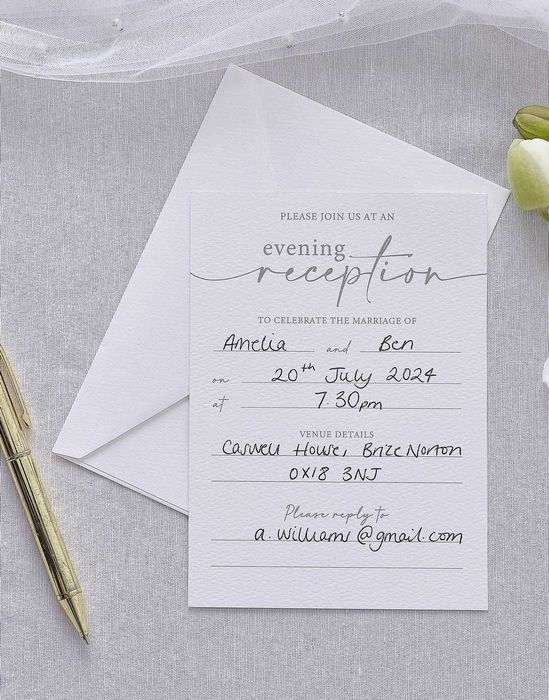 PLEASE JOIN US AT AN
evening
reception
TO CELEBRATE THE MARRIAGE OF
Amelia and Ben
on 20th July 2024
at 7.30pm
VENUE DETAILS
Carswell House, Brize Norton
OX18 3NJ
Please reply to
a.williams@gmail.com